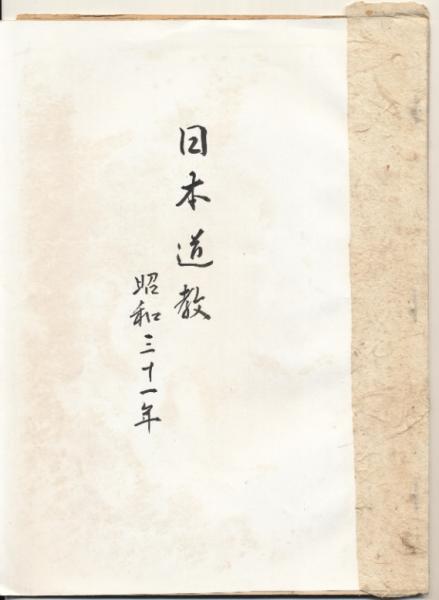 日本道教
昭和三十一年